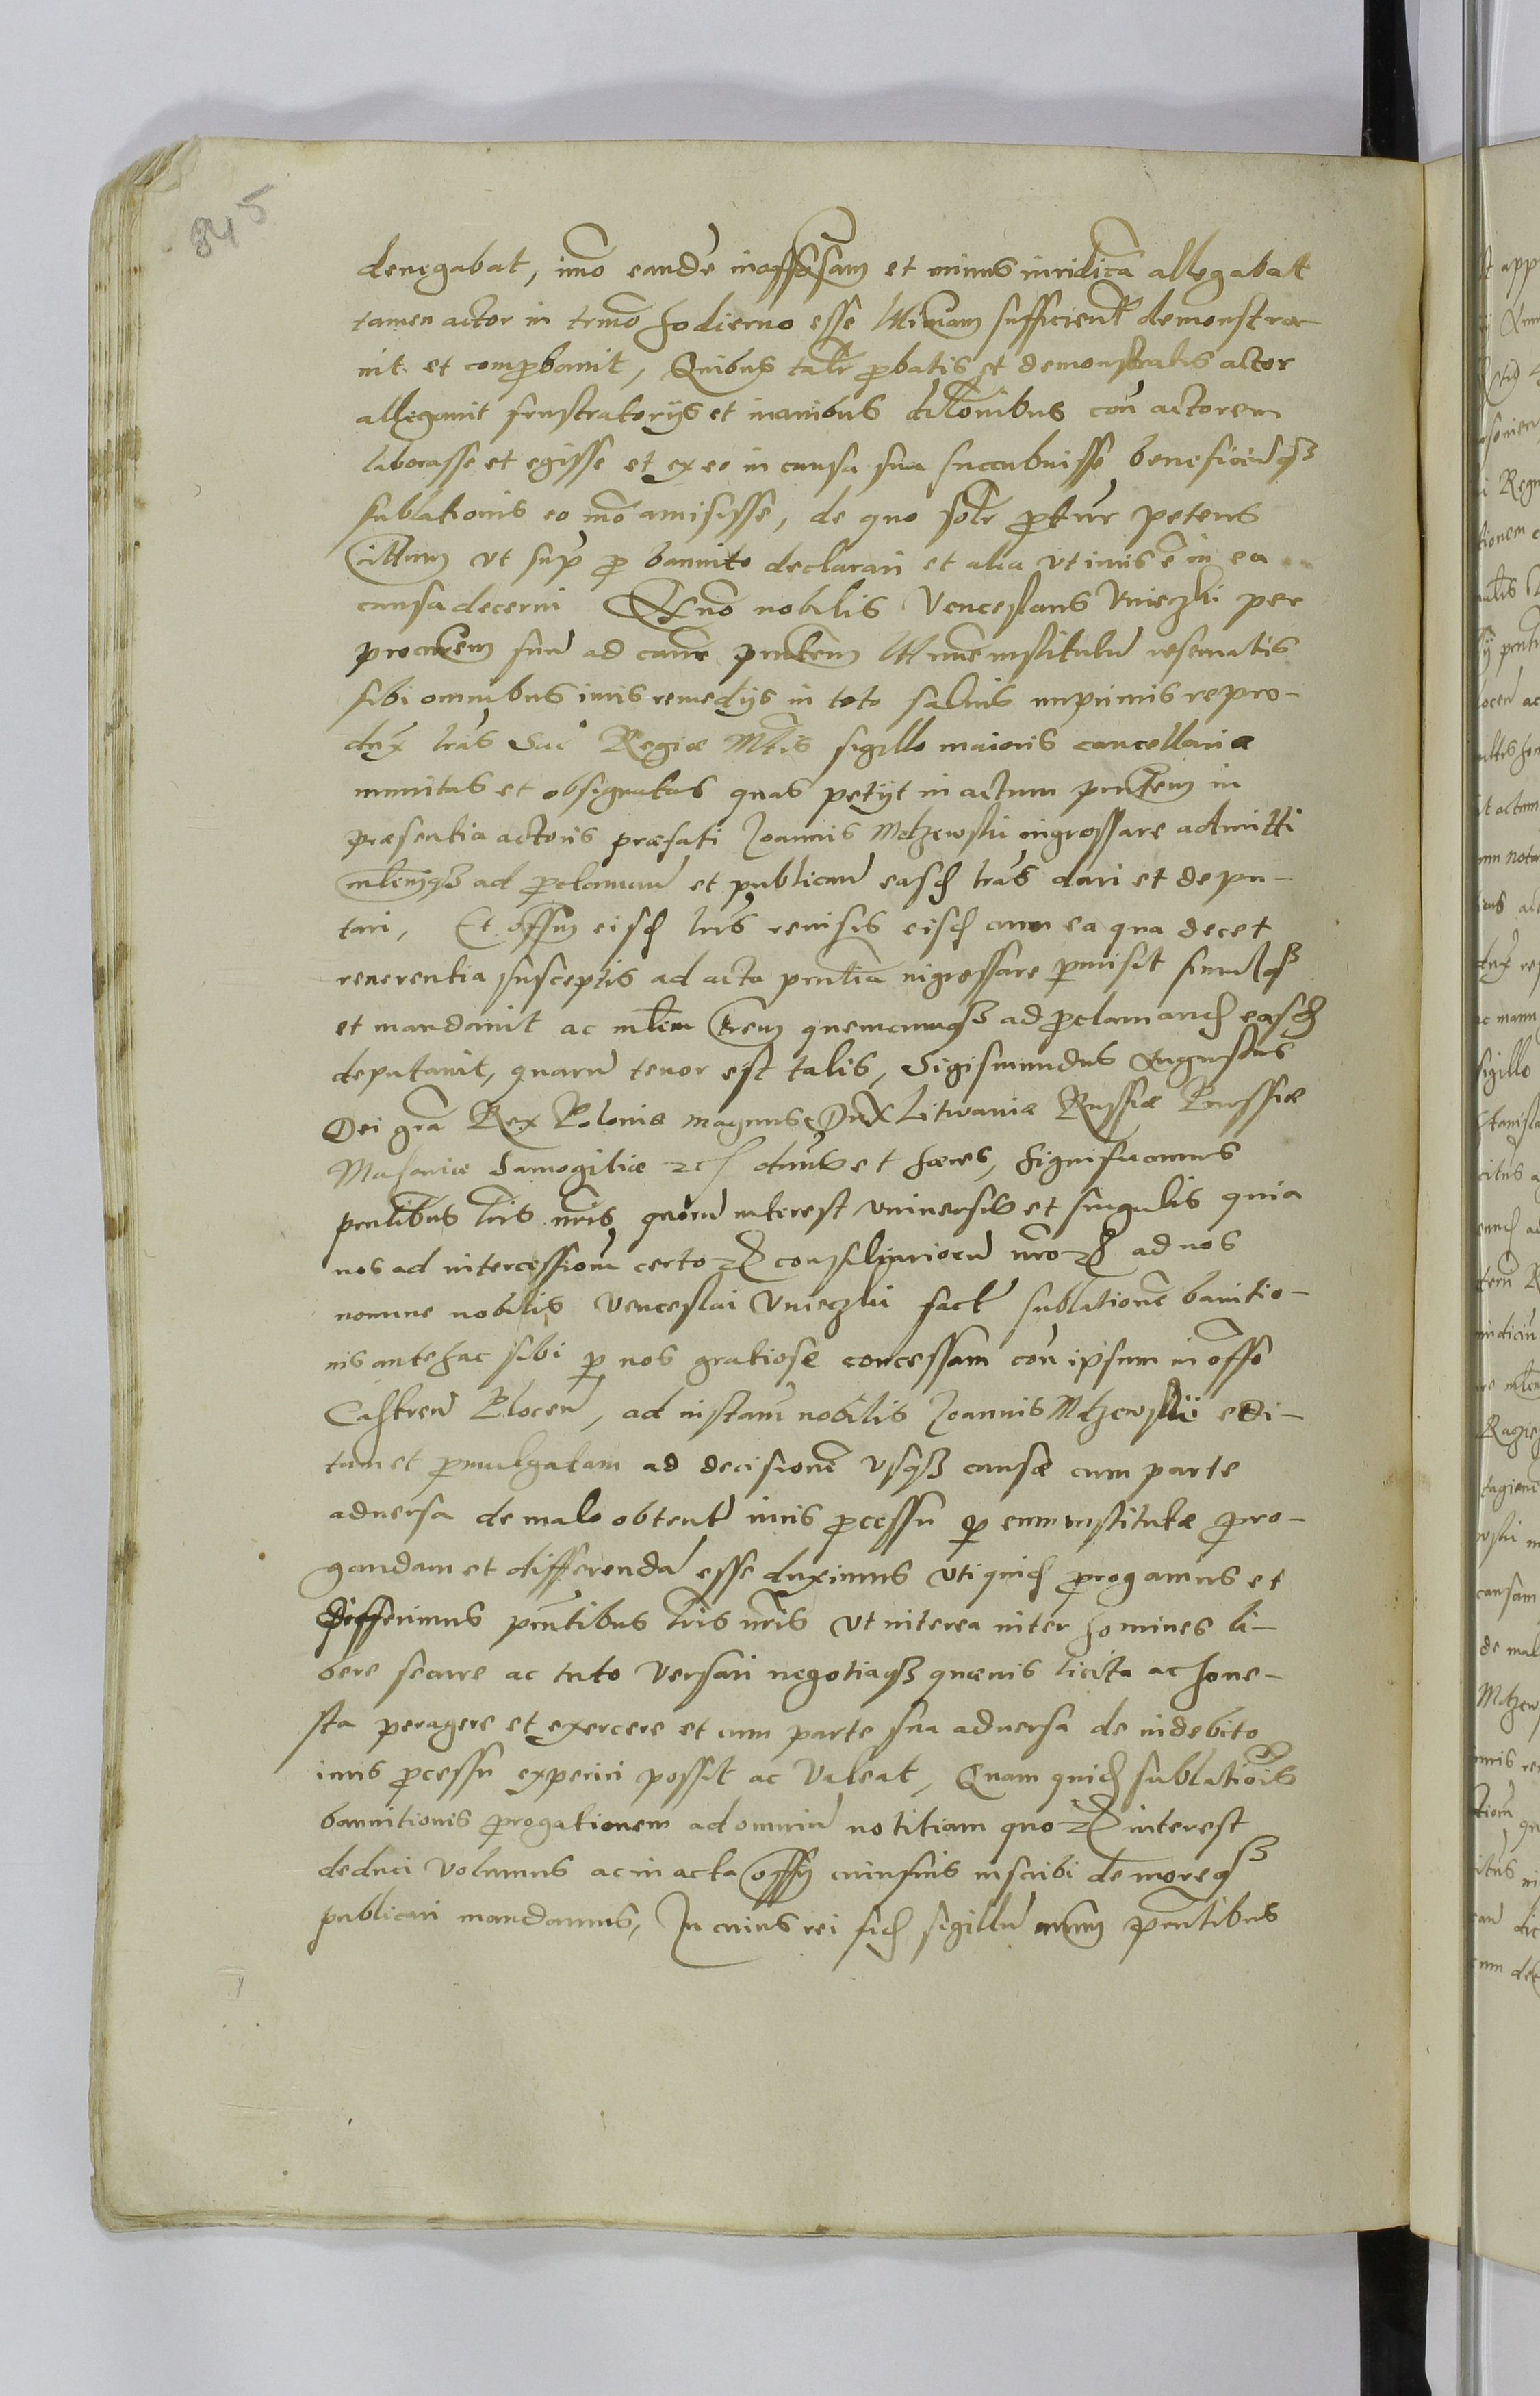 845
denegabat, imo eandē inoffosam et minus iuridicā allegabat
tamen actor in trmō hodierno esse ltimam sufficientr demonstra-
uit et comprobauit, Quibus talr probatis et demonstratis actor
allegauit frustratorijs et inanibus dilōnibus con actorem
laborasse et egisse et ex eo in causa sua succubuisse beneficiūqȝ
sublationis eo mō amisisse, de quo solr prtur petens
cittum ut supra pro bannito declarari et alia ut iuris ē in ea
causa decerni Ex quo nobilis Venceslaus Vnieczki per
procrem suū ad cam prntem ltime institutū reseruatis
sibi omnibus iuris remedijs in toto saluis imprimis repro-
dux lras Sac Regiæ Mtis sigillo maioris cancellariæ
munitas et obsignatas quas petijt in actum prntem in
præsentia actoris præfati Joannis Mdzewski ingrossare admitti
mlemqȝ ad proclamand et publicand easd lras dari et depu-
tari, Et offm eisd lris reuisis eisd cum ea qua decet
reuerentia susceptis ad acta prntia ingrossare permisit simulqȝ
et mandauit ac mlem trem quemcumqȝ ad proclamand easd
deputauit, quarū tenor est talis, Sigismundus Augustus
Dei gra Rex Poloniæ magnus Dux Litwaniæ Russiæ Prussiæ
Masouiæ Samogitiæ etc dnus et hæres, Significamus
prntibus lris nris quorū interest vniuersis et singulis quia
nos ad intercessiom certorum consiliariorū nrorum ad nos
nomine nobilis Venceslai Vnieczki fact sublationē banitio-
nis antehac sibi per nos gratiose concessam con ipsum in offo
Castren Plocen, ad instam nobilis Joannis Mdzewskij edi-
tam et promulgatam ad decisionē vsqȝ causæ cum parte
aduersa de malo obtentu iuris processu per eum institutæ pro-
gandam et differendā esse duximus vti quid progamus et
Differimus prntibus lris nris vt interea inter homines li-
bere secure ac tuto versari negotiaqȝ quæuis licita ac hone-
sta peragere et exercere et cum parte sua aduersa de indebito
iuris processu experiri possit ac valeat, Quam quid sublatiōis
bannitionis progationem ad omniū notitiam quorum interest
deduci volumus ac in acta offij cuiusuis inscribi de moreqȝ
publicari mandamus, In cuius rei fid sigillū nrum prntibus